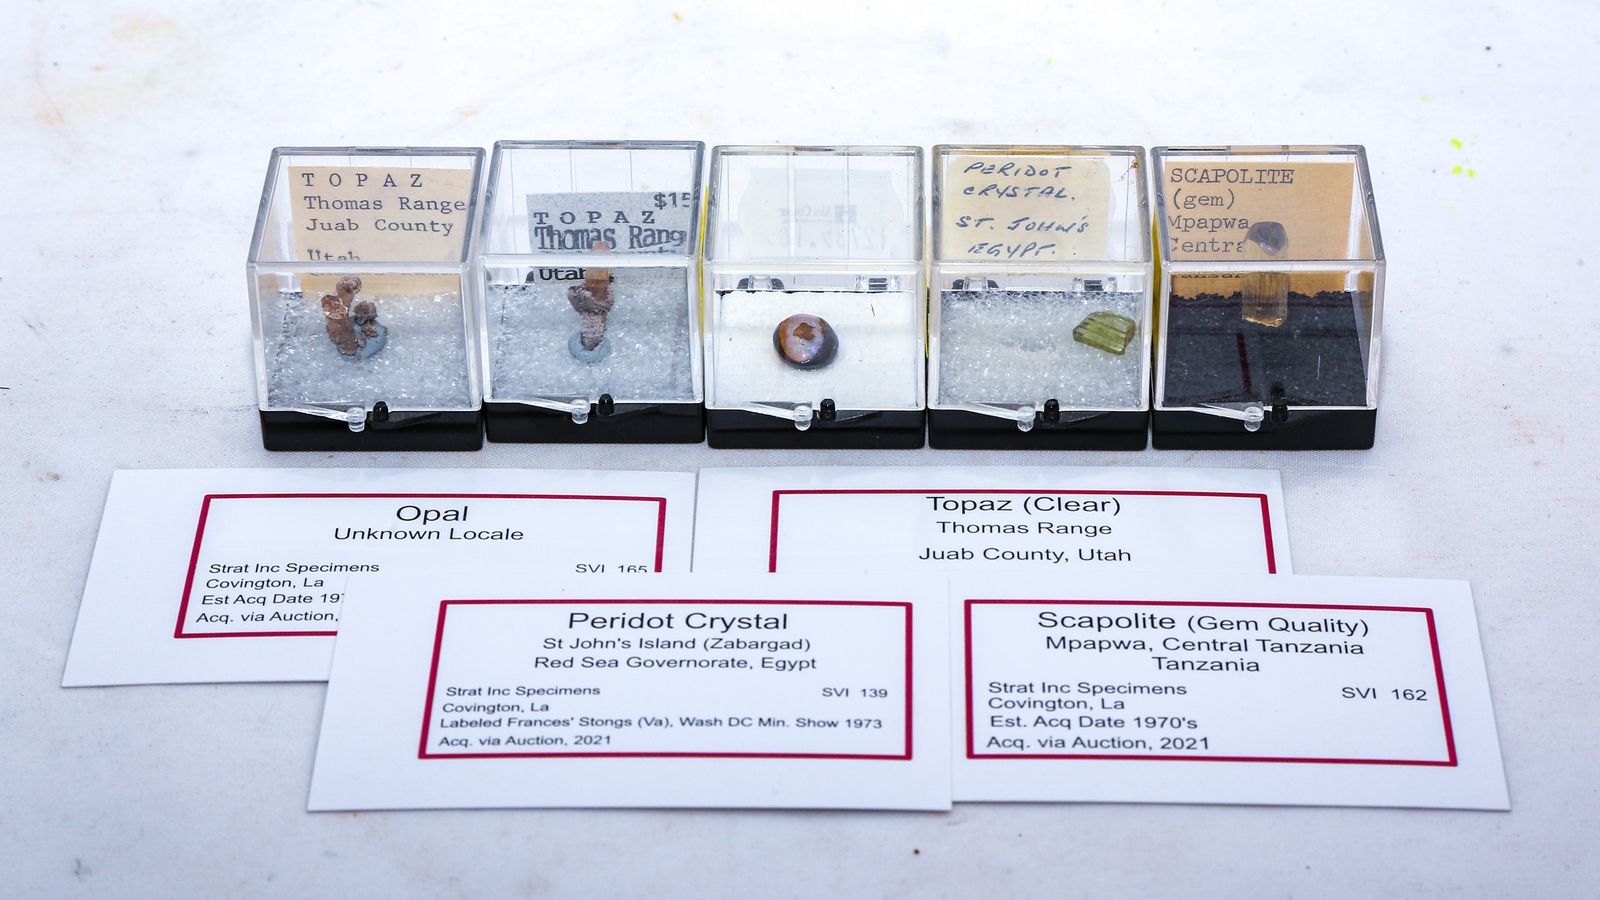 TOPAZ
Thomas Range
Juab County
Utah
$15
TOPAZ
Thomas Rang
Utah
PERIDOT
CRYSTAL.
ST. JOHN'S
EGYPT.
SCAPOLITE
(gem)
Mpapwa
Centra
Opal
Unknown Locale
Strat Inc Specimens SVI 165
Covington, La
Est Acq Date 197
Acq. via Auction,
Topaz (Clear)
Thomas Range
Juab County, Utah
Peridot Crystal
St John's Island (Zabargad)
Red Sea Governorate, Egypt
Strat Inc Specimens SVI 139
Covington, La
Labeled Frances' Stongs (Va), Wash DC Min. Show 1973
Acq. via Auction, 2021
Scapolite (Gem Quality)
Mpapwa, Central Tanzania
Tanzania
Strat Inc Specimens SVI 162
Covington, La
Est. Acq Date 1970's
Acq. via Auction, 2021